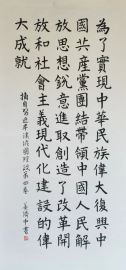 為了實現中華民族偉大復興中
國共產黨團結帶領中國人民解
放思想銳意進取創造了改革開
放和社會主義現代化建設的偉
大成就
摘自習近平談治國理政第四卷